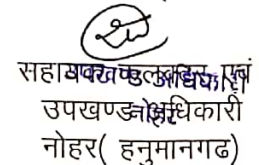 सहायक कलक्टर एवं
उपखण्ड अधिकारी
नोहर( हनुमानगढ)